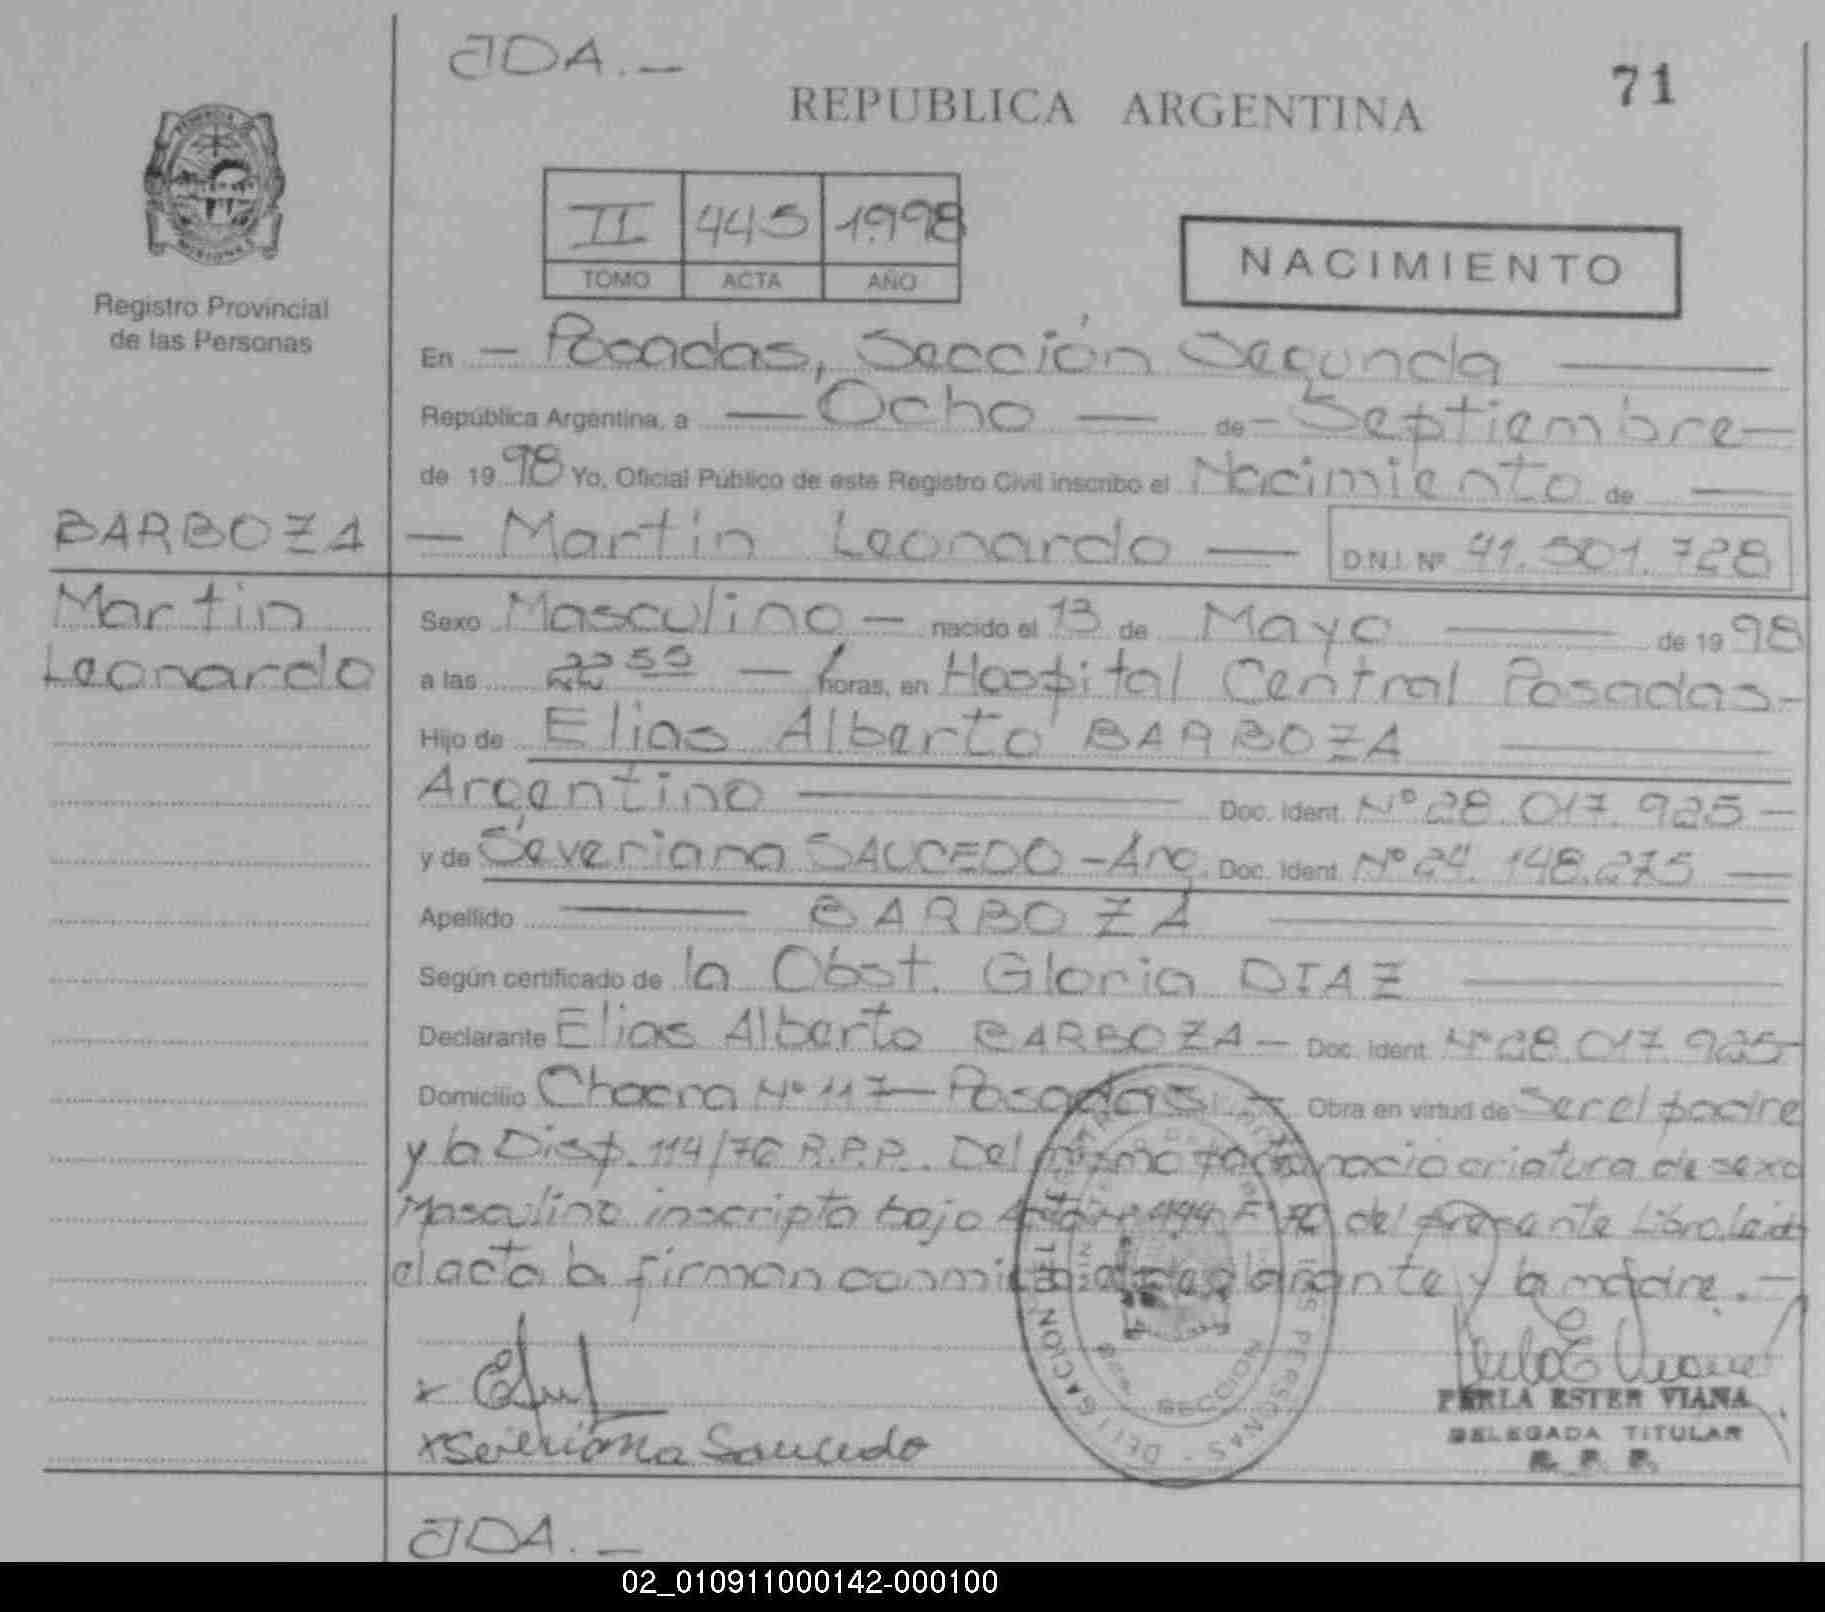 JDA.—
71
REPUBLICA ARGENTINA
II 445 1998
TOMO ACTA AÑO
NACIMIENTO
Registro Provincial
de las Personas
En — Posadas, Sección Segunda —
República Argentina, a — Ocho — de — Septiembre —
de 1998 Yo, Oficial Público de este Registro Civil inscribo el Nacimiento de —
BARBOZA — Martin Leonardo — D.N.I. Nº 41.501.728
Martin
Leonardo
Sexo Masculino — nacido el 13 de Mayo — de 1998
a las 22 55 — horas, en Hospital Central Posadas —
Hijo de Elias Alberto BARBOZA —
Argentino — Doc. Ident. Nº 28.017.925 —
y de Severiana SAUCEDO - Arg. Doc. Ident. Nº 24.148.275 —
Apellido — BARBOZA —
Según certificado de la Obst. Gloria DIAZ —
Declarante Elias Alberto BARBOZA — Doc. Ident. Nº 28.017.925
Domicilio Chacra Nº 117 — Posadas — Obra en virtud de Ser el padre
y la Disp. 114/76 R.P.P. Del mismo parto nacio criatura de sexo
Masculino inscripto bajo 444 del presente Libro. Leida
el acta la firman conmigo el declarante y la madre. —
x
x Severiana Saucedo
PERLA ESTER VIANA
DELEGADA TITULAR
R. P. P.
JDA.—
02_010911000142-000100